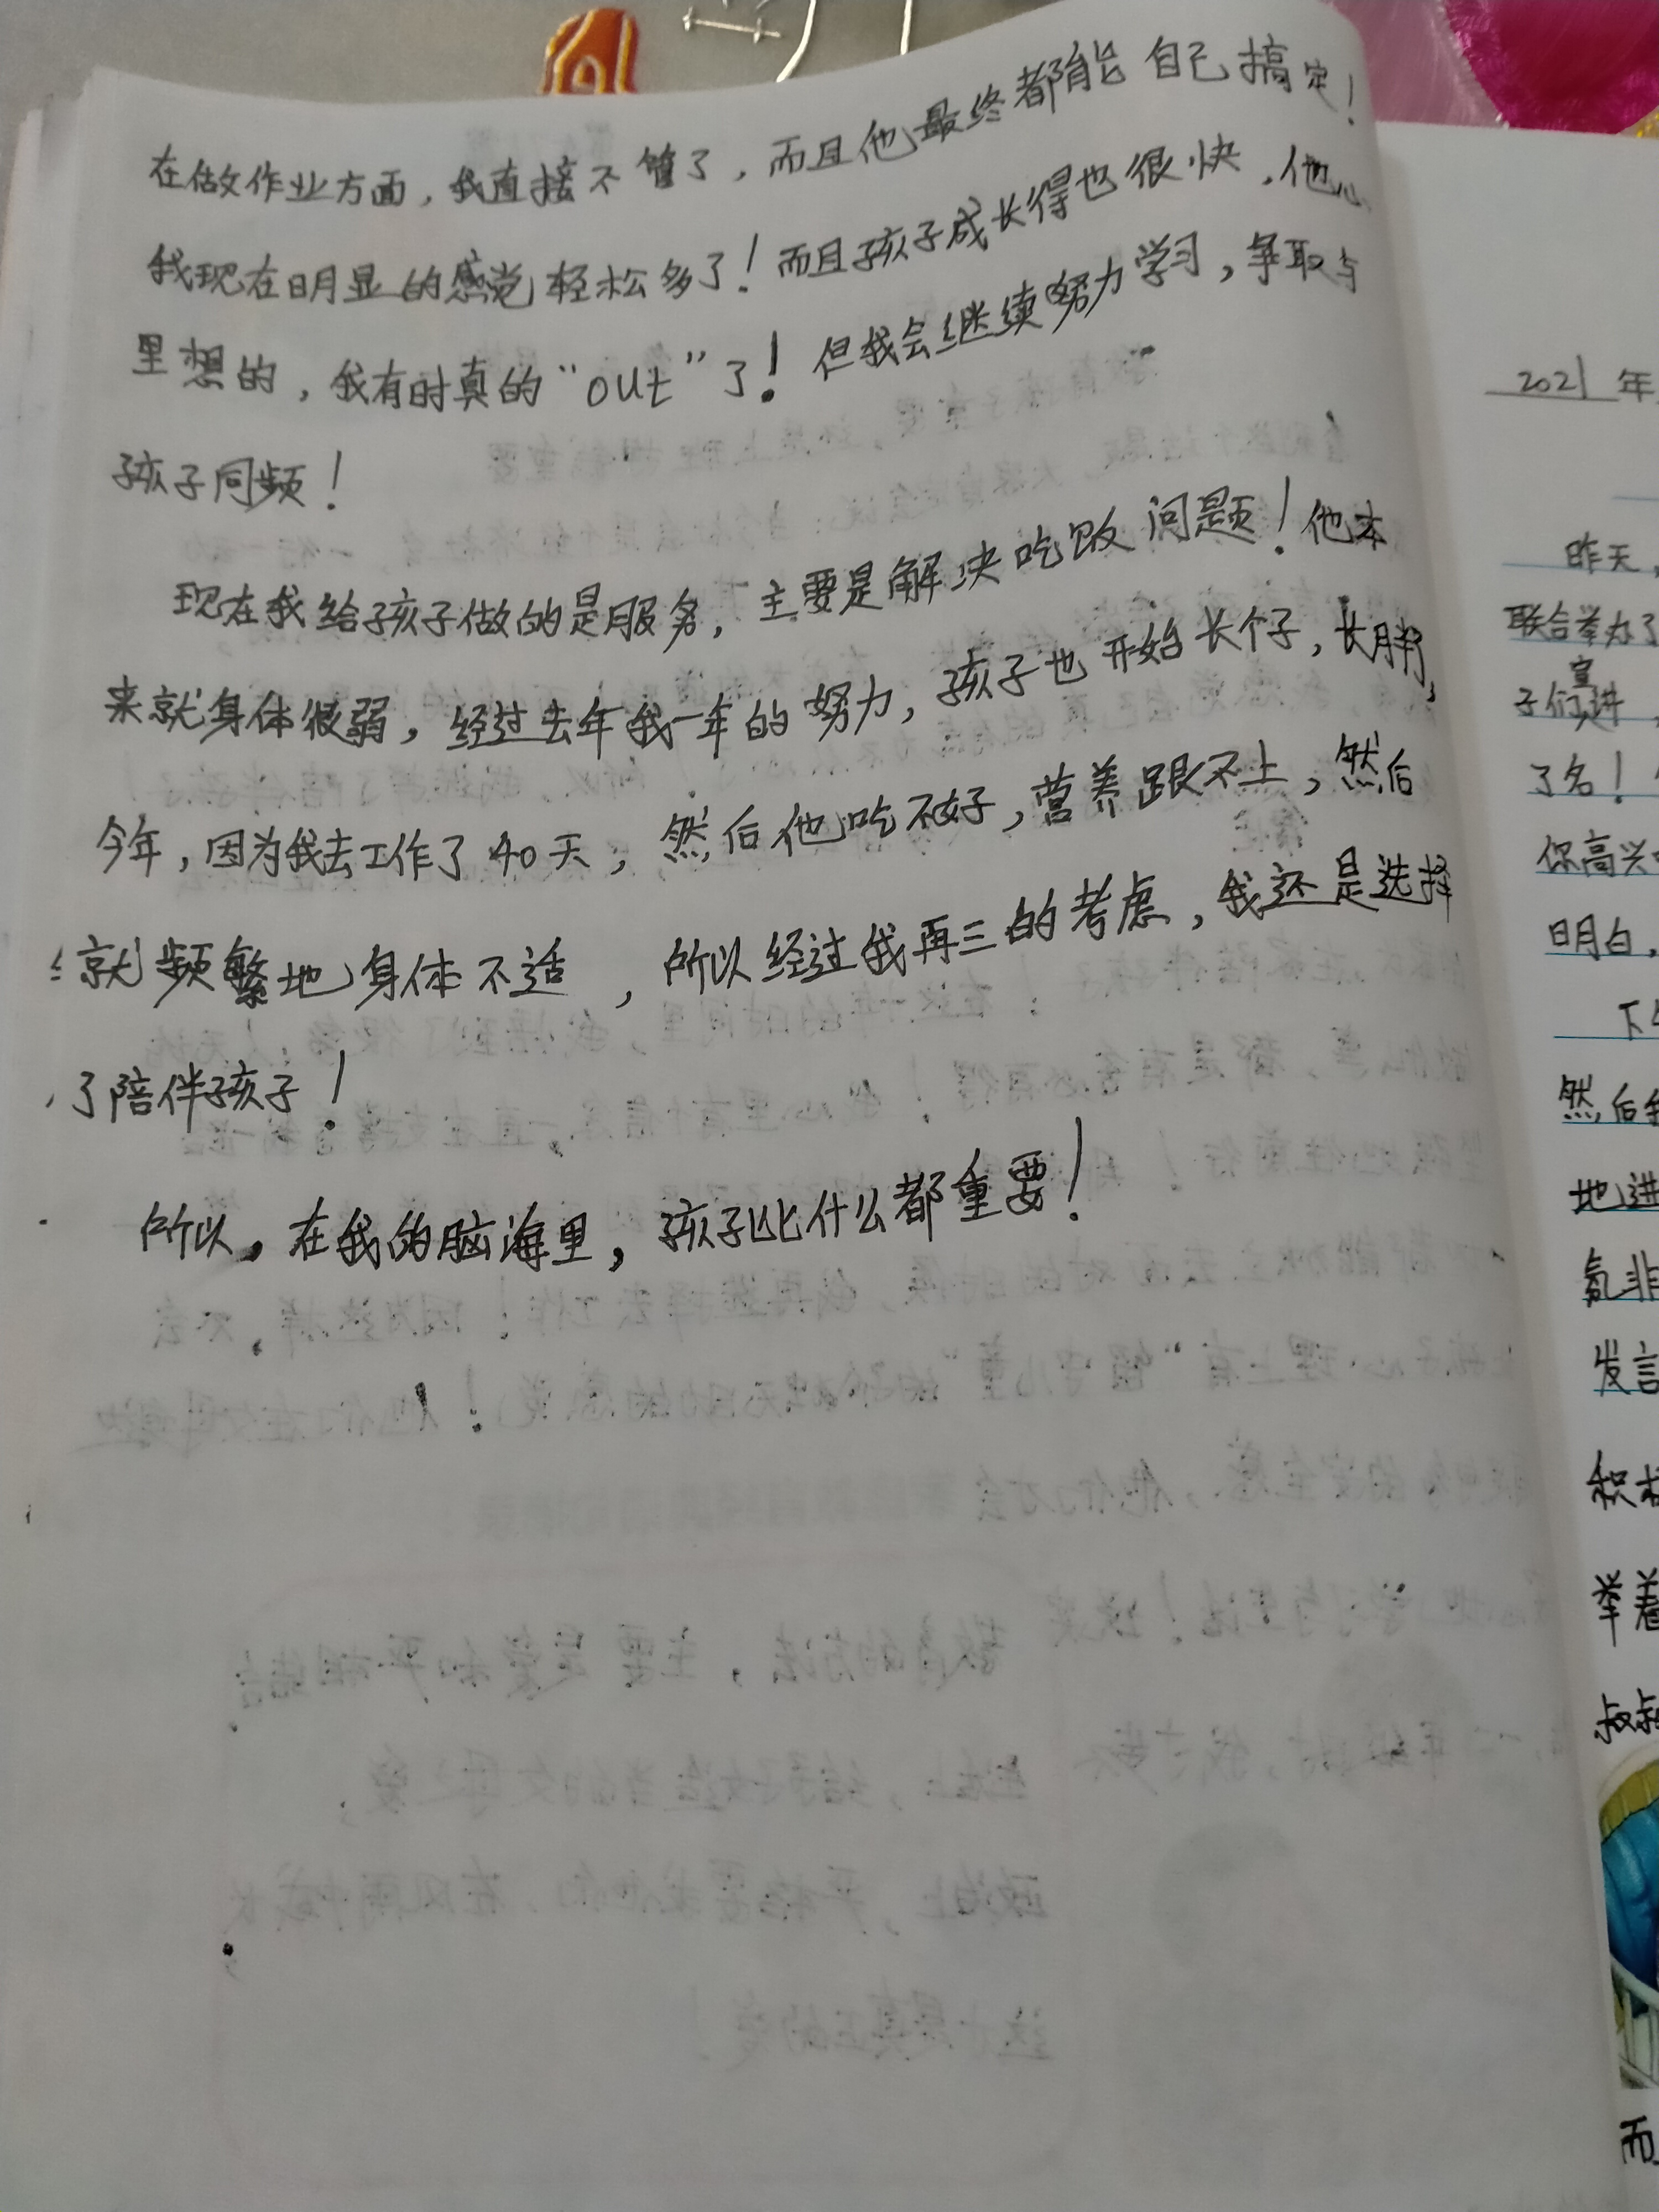 在做作业方面，我直接不管了，而且他最终都能自己搞定！
我现在明显的感觉轻松多了！而且孩子成长得也很快，他心
里想的，我有时真的“out”了！但我会继续努力学习，争取与
孩子同频！
现在我给孩子做的是服务，主要是解决吃饭问题！他本
来就身体很弱，经过去年我一年的努力，孩子也开始长个子，长胖，
今年，因为我去工作了40天，然后他吃不好，营养跟不上，然后
就频繁地身体不适，所以经过我再三的考虑，我还是选择
了陪伴孩子！
所以，在我的脑海里，孩子比什么都重要！
2021年
昨天，
联合举办了
子们宣讲，
了名！
你高兴
明白，
下午
然后我
地进
氛非
发言
积极
举着
叔叔
而